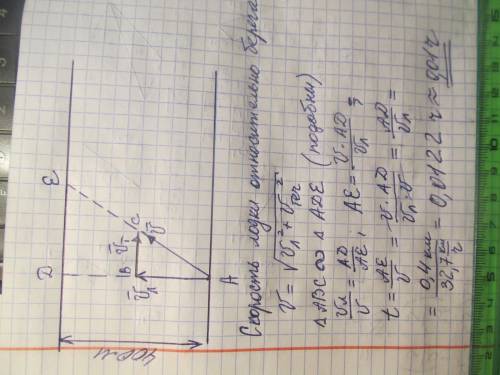 400 м
D
E
B
C
A
V̄л
V̄т
V̄
Скорость лодки относительно берега
V = √(Vл² + Vтеч²)
△ABC ∞ △ADE (подобны)
Vл/V = AD/AE, AE = V·AD/Vл;
t = AE/V = V·AD/Vл·V = AD/Vл =
= 0,4 км / 32,7 км/ч = 0,0122 ч ≈